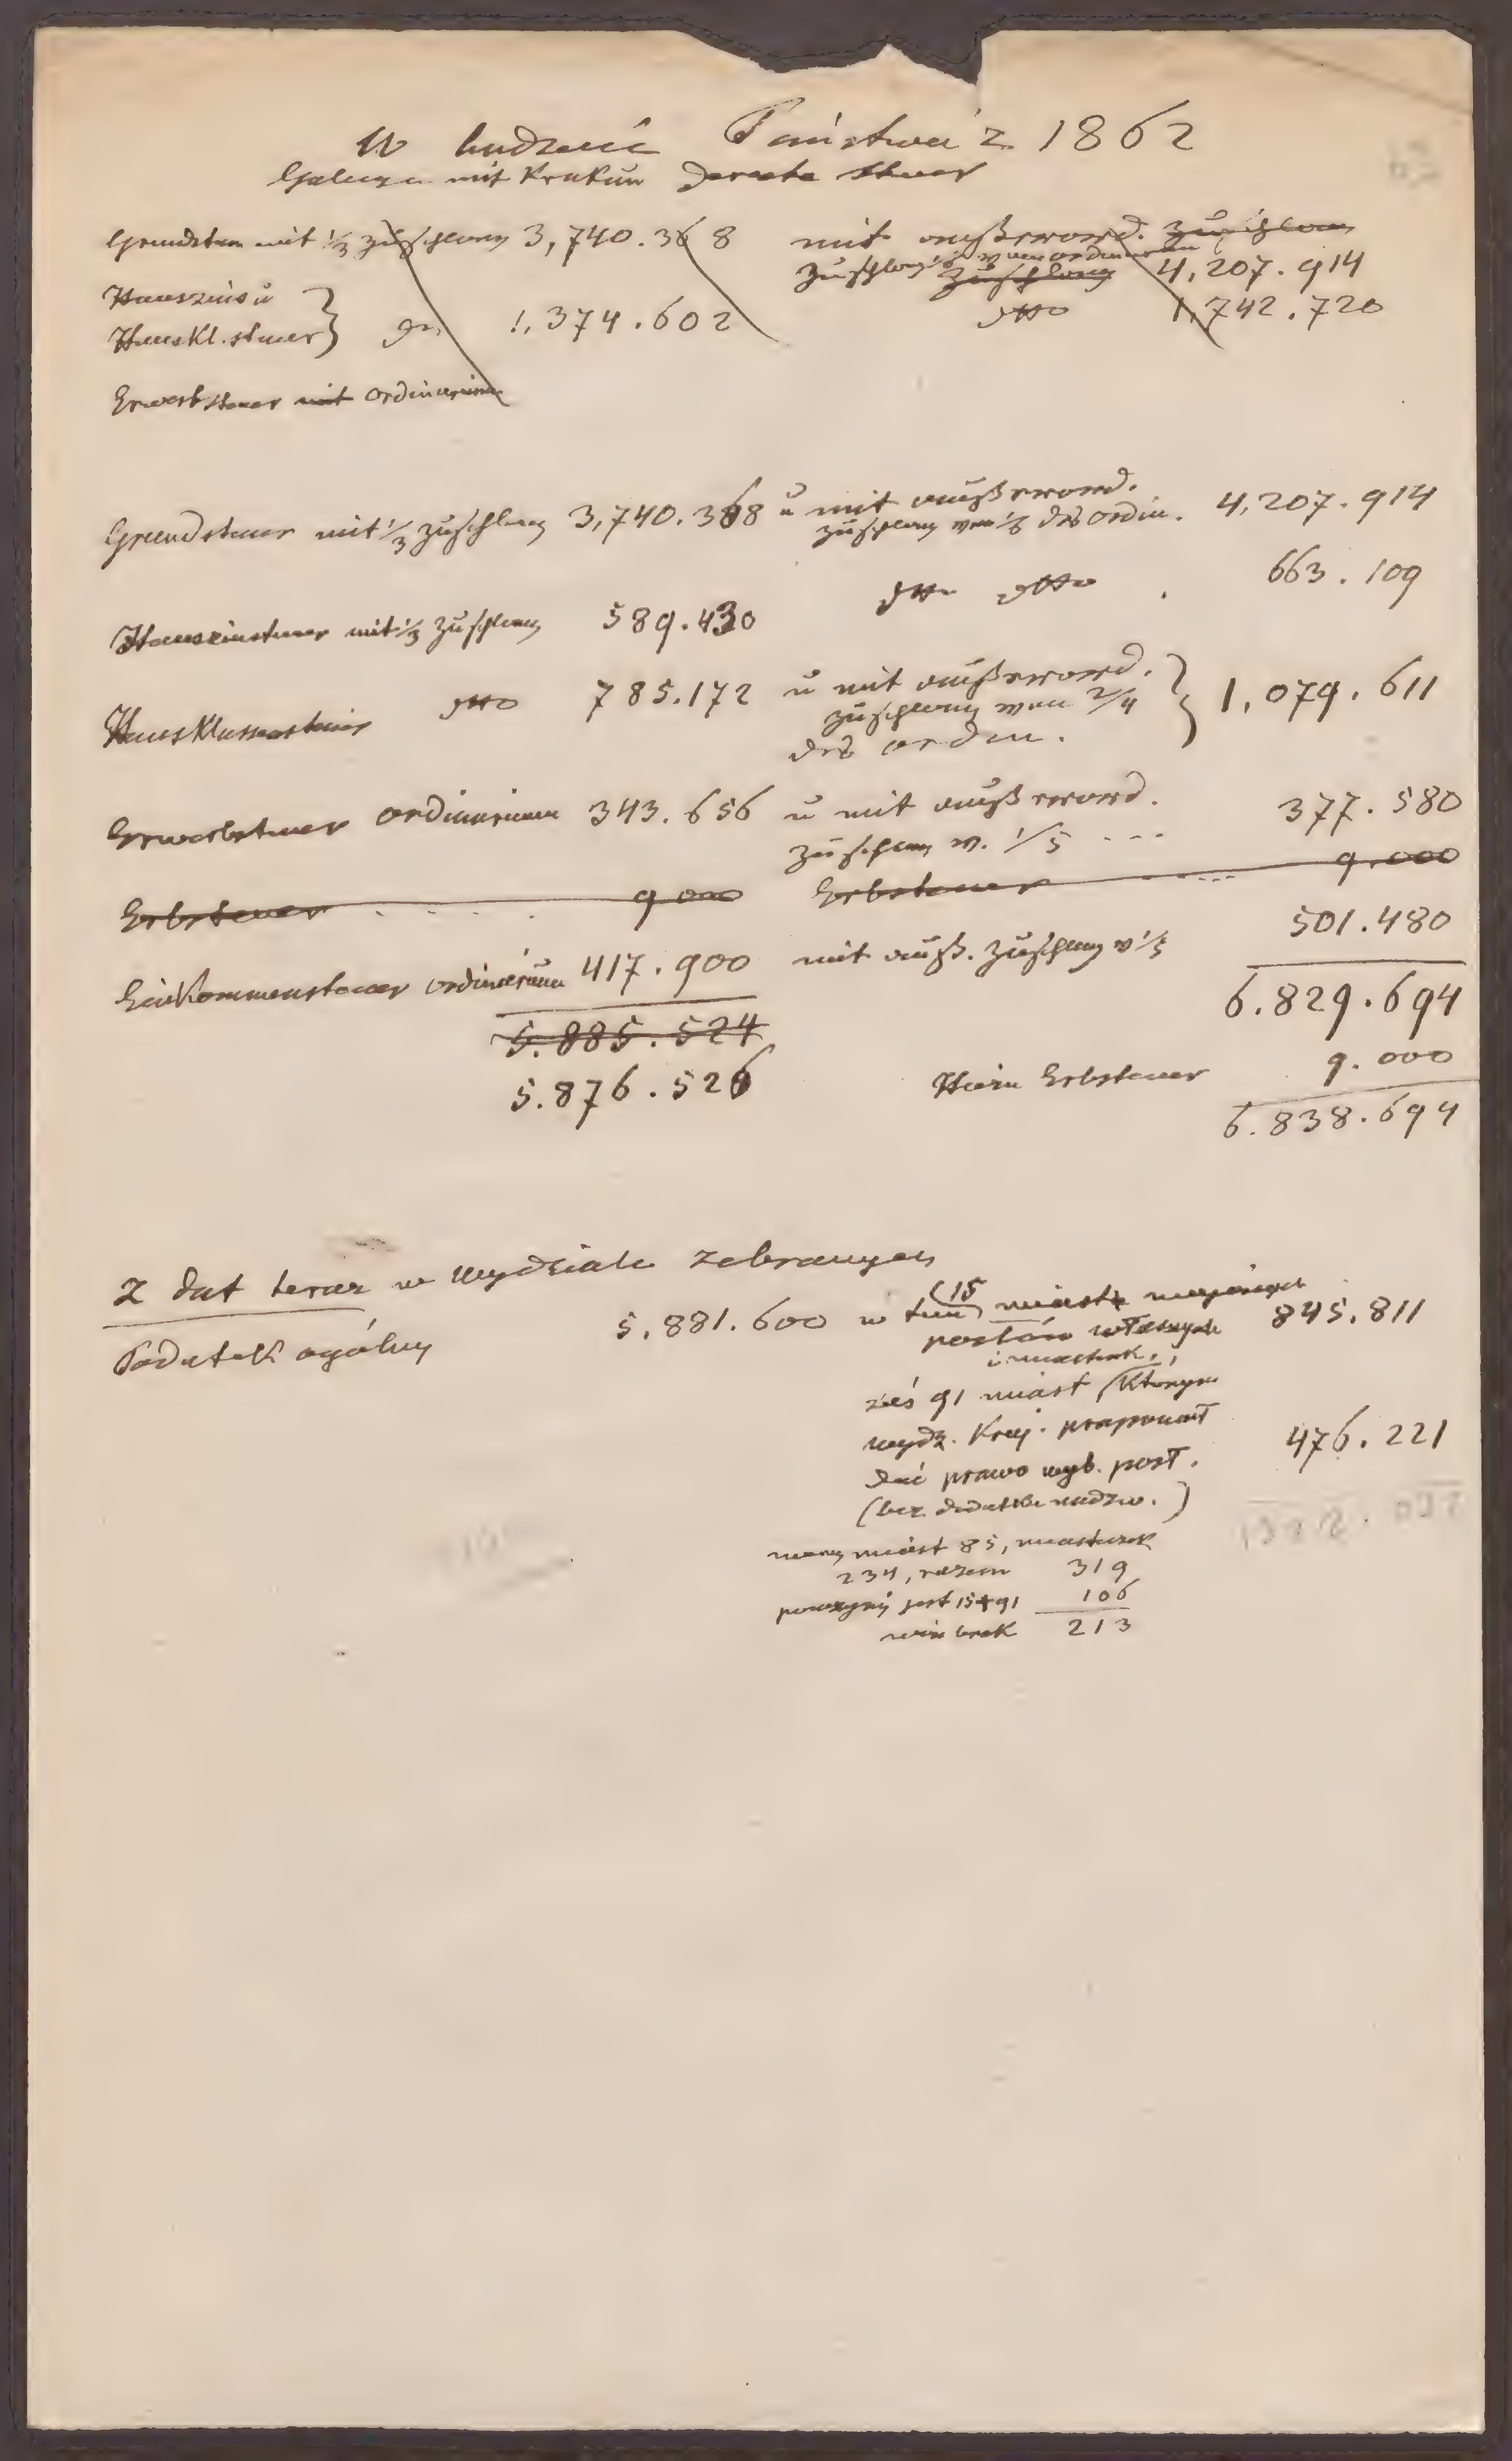 W budżecie Państwa z 1862
Galizien mit Krakau Directe Steuer
Grundsteu mit 1/3 Zuschlang 3,740.368 mit außerord. Zuschlang
Zuschlag 1/6 von ordinarium Zuschlang 4,207.914
Hauszins u
HausKl. steuer } dto 1,374.602 dtto 1,742.720
Erwerbsteuer mit ordinarium
Grundsteuer mit 1/3 Zuschlang 3,740.368 u mit außerord. Zuschlang von 1/6 des ordin. 4,207.914
Hauszinsteuer mit 1/3 Zuschlang 589.430 dtto dtto . 663.109
HausKlassensteuer dtto 785.172 u mit außerord. Zuschlang von 2/4 des orden. } 1,079.611
Erwerbsteuer ordinarium 343.656 u mit außerord. Zuschlang v. 1/5 --- 377.580
Erbsteuer . . . . 9.000 Erbsteuer ..... 9.000
Einkommensteuer ordinarium 417.900 mit auß. Zuschlang v 1/5 501.480
5.885.524 6.829.694
5.876.526 Hiezu Erbsteuer 9.000
6.838.694
Z dat teraz w Wydziale zebranych
Podatek ogólny 5,881.600 w tem (15) miast mających 845.811
posłów własnych
i miastecz.
zaś 91 miast, którym
wydz. Kraj. proponował 476.221
dać prawo wyb. posł.
(bez dodatku nadzw.)
mamy miast 85, miasteczek
234, razem 319
powyżej jest 15+91 106
więc brak 213